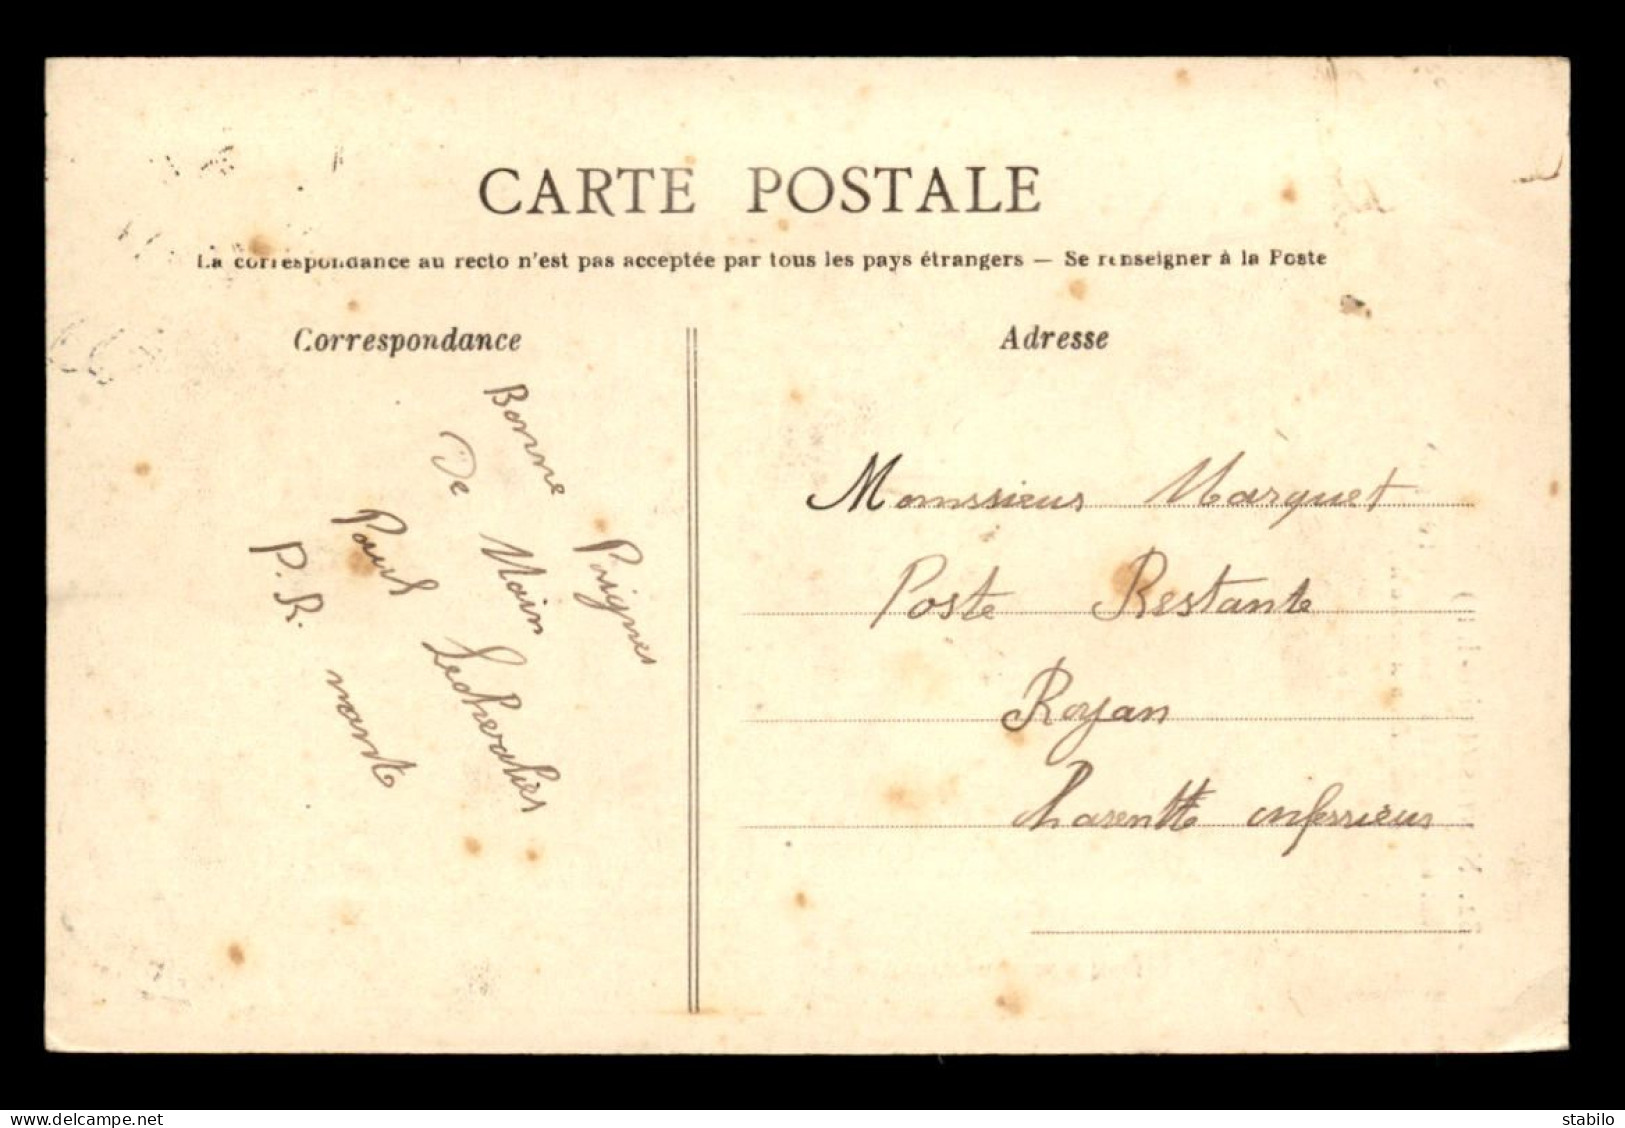 CARTE POSTALE
La correspondance au recto n'est pas acceptée par tous les pays étrangers — Se renseigner à la Poste
Correspondance
Bonne Poignes
De Main
Paul Lechevalier
P. R. nante
Adresse
Monssieur Marquet
Poste Restante
Royan
Charentte inferrieur
delcampe.net
stabilo